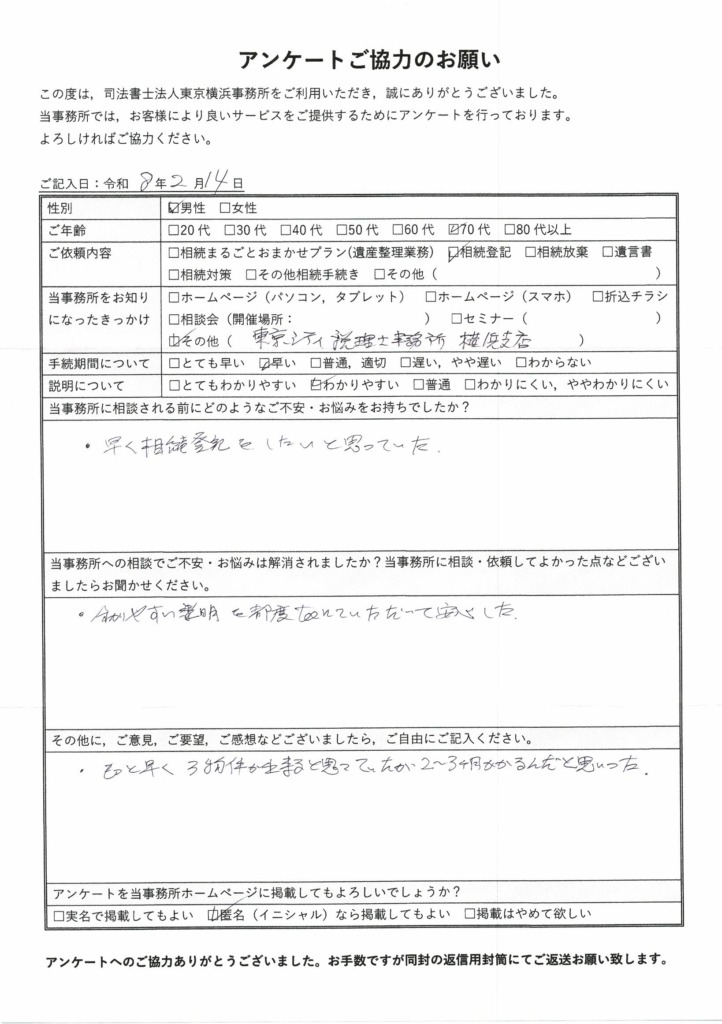 アンケートご協力のお願い
この度は，司法書士法人東京横浜事務所をご利用いただき，誠にありがとうございました。
当事務所では，お客様により良いサービスをご提供するためにアンケートを行っております。
よろしければご協力ください。
ご記入日：令和 8 年 2 月 14 日
性別 ☑男性 □女性
ご年齢 □20代 □30代 □40代 □50代 □60代 ☑70代 □80代以上
ご依頼内容 □相続まるごとおまかせプラン(遺産整理業務) ☑相続登記 □相続放棄 □遺言書
□相続対策 □その他相続手続き □その他（ ）
当事務所をお知り □ホームページ（パソコン，タブレット） □ホームページ（スマホ） □折込チラシ
になったきっかけ □相談会（開催場所： ） □セミナー（ ）
☑その他（ 東京シティ税理士事務所 横浜支店 ）
手続期間について □とても早い ☑早い □普通，適切 □遅い，やや遅い □わからない
説明について □とてもわかりやすい ☑わかりやすい □普通 □わかりにくい，ややわかりにくい
当事務所に相談される前にどのようなご不安・お悩みをお持ちでしたか？
・早く相続登記をしたいと思っていた．
当事務所への相談でご不安・お悩みは解消されましたか？当事務所に相談・依頼してよかった点などござい
ましたらお聞かせください。
・分かりやすい説明を都度されていただいて安心した．
その他に，ご意見，ご要望，ご感想などございましたら，ご自由にご記入ください。
・もっと早く 3物件が出来ると思っていたが 2〜3ヶ月かかるんだと思った．
アンケートを当事務所ホームページに掲載してもよろしいでしょうか？
□実名で掲載してもよい ☑匿名（イニシャル）なら掲載してもよい □掲載はやめて欲しい
アンケートへのご協力ありがとうございました。お手数ですが同封の返信用封筒にてご返送お願い致します。